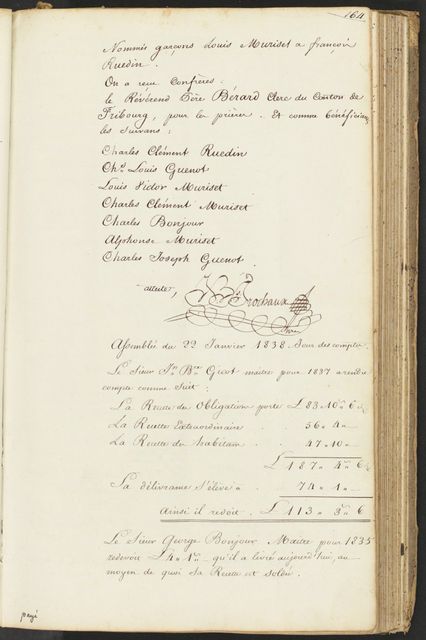 164
Nommés garçons Louis Muriset & françois
Ruedin.
On a reçu Confrères :
le Révérend Père Bérard Clerc du Canton de
Fribourg, pour la prière. Et comme bénéficians
les suivans :
Charles Clément Ruedin
Chs. Louis Guenot
Louis Isidor Muriset
Charles Clément Muriset
Charles Bonjour
Alphonse Muriset
Charles Joseph Guenot.
atteste,
Frochaux
Assemblée du 22 Janvier 1838. Jour des comptes.
Le Sieur Jn. Bte. Gicot maître pour 1837 a rendu
compte comme suit :
La Recette des Obligations porte £ 83 " 10 " 6
La Recette Extraordinaire " 56 " 4 "
La Recette des habitans " 47 " 10 "
£ 187 " 4 " 6
Sa délivrance s'élève à " 74 " 1 "
Ainsi il redoit . £ 113 " 3 " 6
Le Sieur George Bonjour Maître pour 1835
redevoit £ 4 " 1 " qu'il a livré aujourd'hui, au
moyen de quoi sa Recette est soldée.
payé